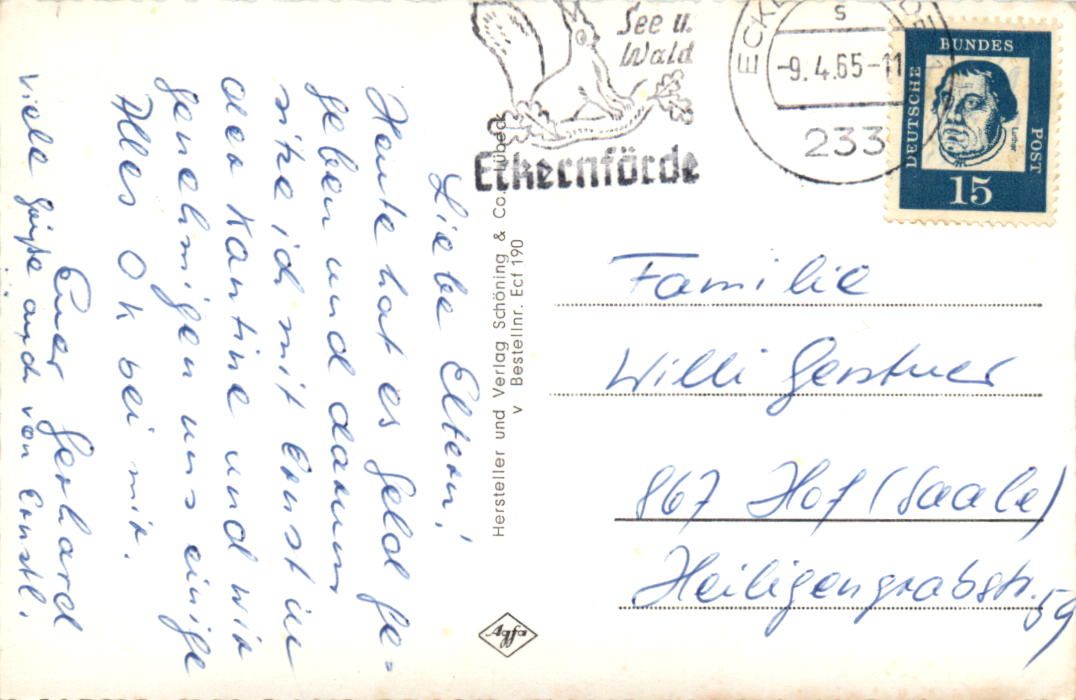 Liebe Eltern!
Heute hat es Geld ge=
geben und darum
sitze ich mit Ernst in
der Kantine und wir
genehmigen uns einige
Alles OK bei mir.
Euer Gerhard
viele Grüße auch von Ernstl.
See u.
Wald
Eckernförde
S
-9.4.65-11
233
DEUTSCHE
BUNDES
POST
Luther
15
Hersteller und Verlag Schöning & Co., Lübeck
v Bestellnr. Ecf 190
Agfa
Familie
Willi Gerstner
867 Hof (Saale)
Heiligengrabstr. 59